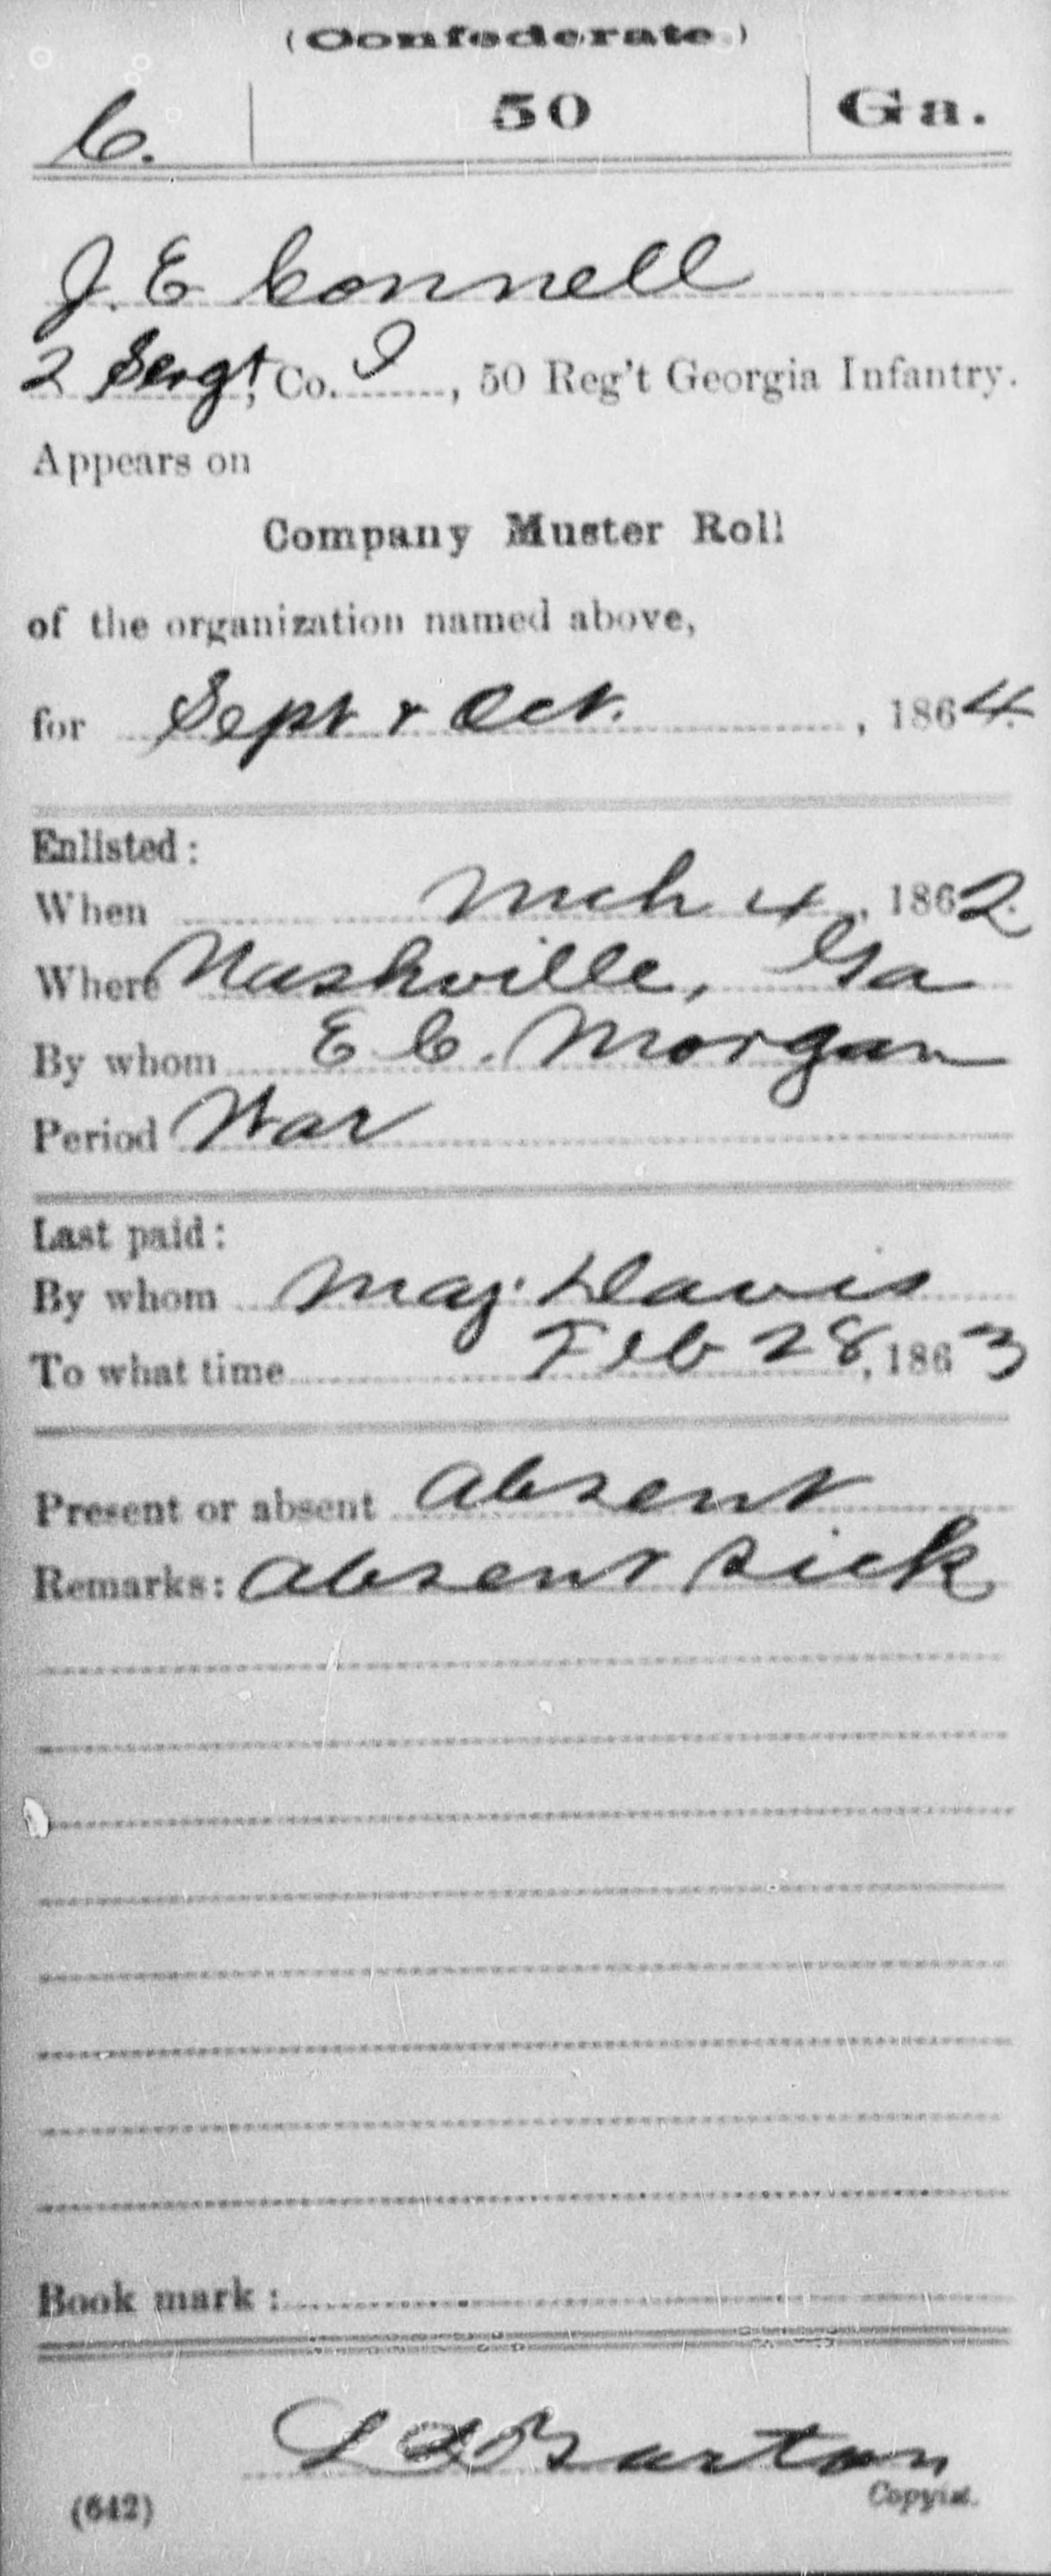 (Confederate.)
C. 50 Ga.
J. E Connell
2 Sergt, Co. I, 50 Reg't Georgia Infantry.
Appears on
Company Muster Roll
of the organization named above,
for Sept & Oct. , 1864.
Enlisted:
When Mch 4, 1862.
Where Nashville, Ga
By whom E C. Morgan
Period War
Last paid:
By whom Maj. Davis
To what time Feb 28, 1863
Present or absent Absent
Remarks: Absent sick
Book mark:
Barton
(642) Copyist.